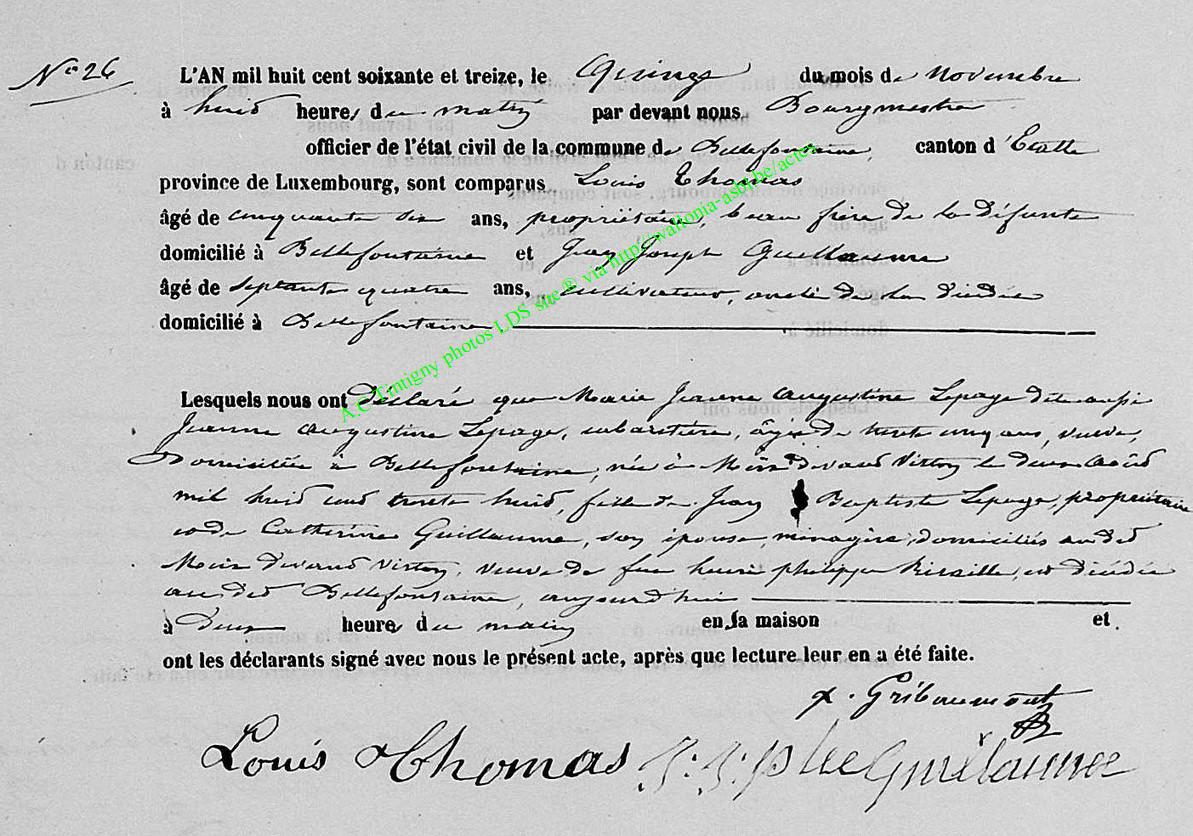 N° 26
L'AN mil huit cent soixante et treize, le Quinze du mois de novembre
à huit heures du matin par devant nous Bourgmestre
officier de l'état civil de la commune de Bellefontaine, canton d'Etalle
province de Luxembourg, sont comparus Louis Thomas
âgé de cinquante six ans, propriétaire, beau frère de la défunte
domicilié à Bellefontaine et Jean Joseph Guillaume
âgé de septante quatre ans, cultivateur, oncle de la décédée
domicilié à Bellefontaine
Lesquels nous ont déclaré que Marie Jeanne Augustine Lepage dite aussi
Jeanne Augustine Lepage, cabaretière, âgée de trente cinq ans, veuve,
Domiciliée à Bellefontaine, née à Meix Devant Virton le deux Août
mil huit cent trente huit, fille de Jean Baptiste Lepage, propriétaire
et de Catherine Guillaume, son épouse, ménagère, domiciliés audit
Meix Devant Virton, veuve de feu henri philippe est décédée
audit Bellefontaine, aujourd'hui
à Deux heures du matin en sa maison et
ont les déclarants signé avec nous le présent acte, après que lecture leur en a été faite.
Gribaumont
Louis Thomas J: J: ph Guillaume
A.C Tintigny photos LDS site ® via http://wallonia-asbl.be/actes